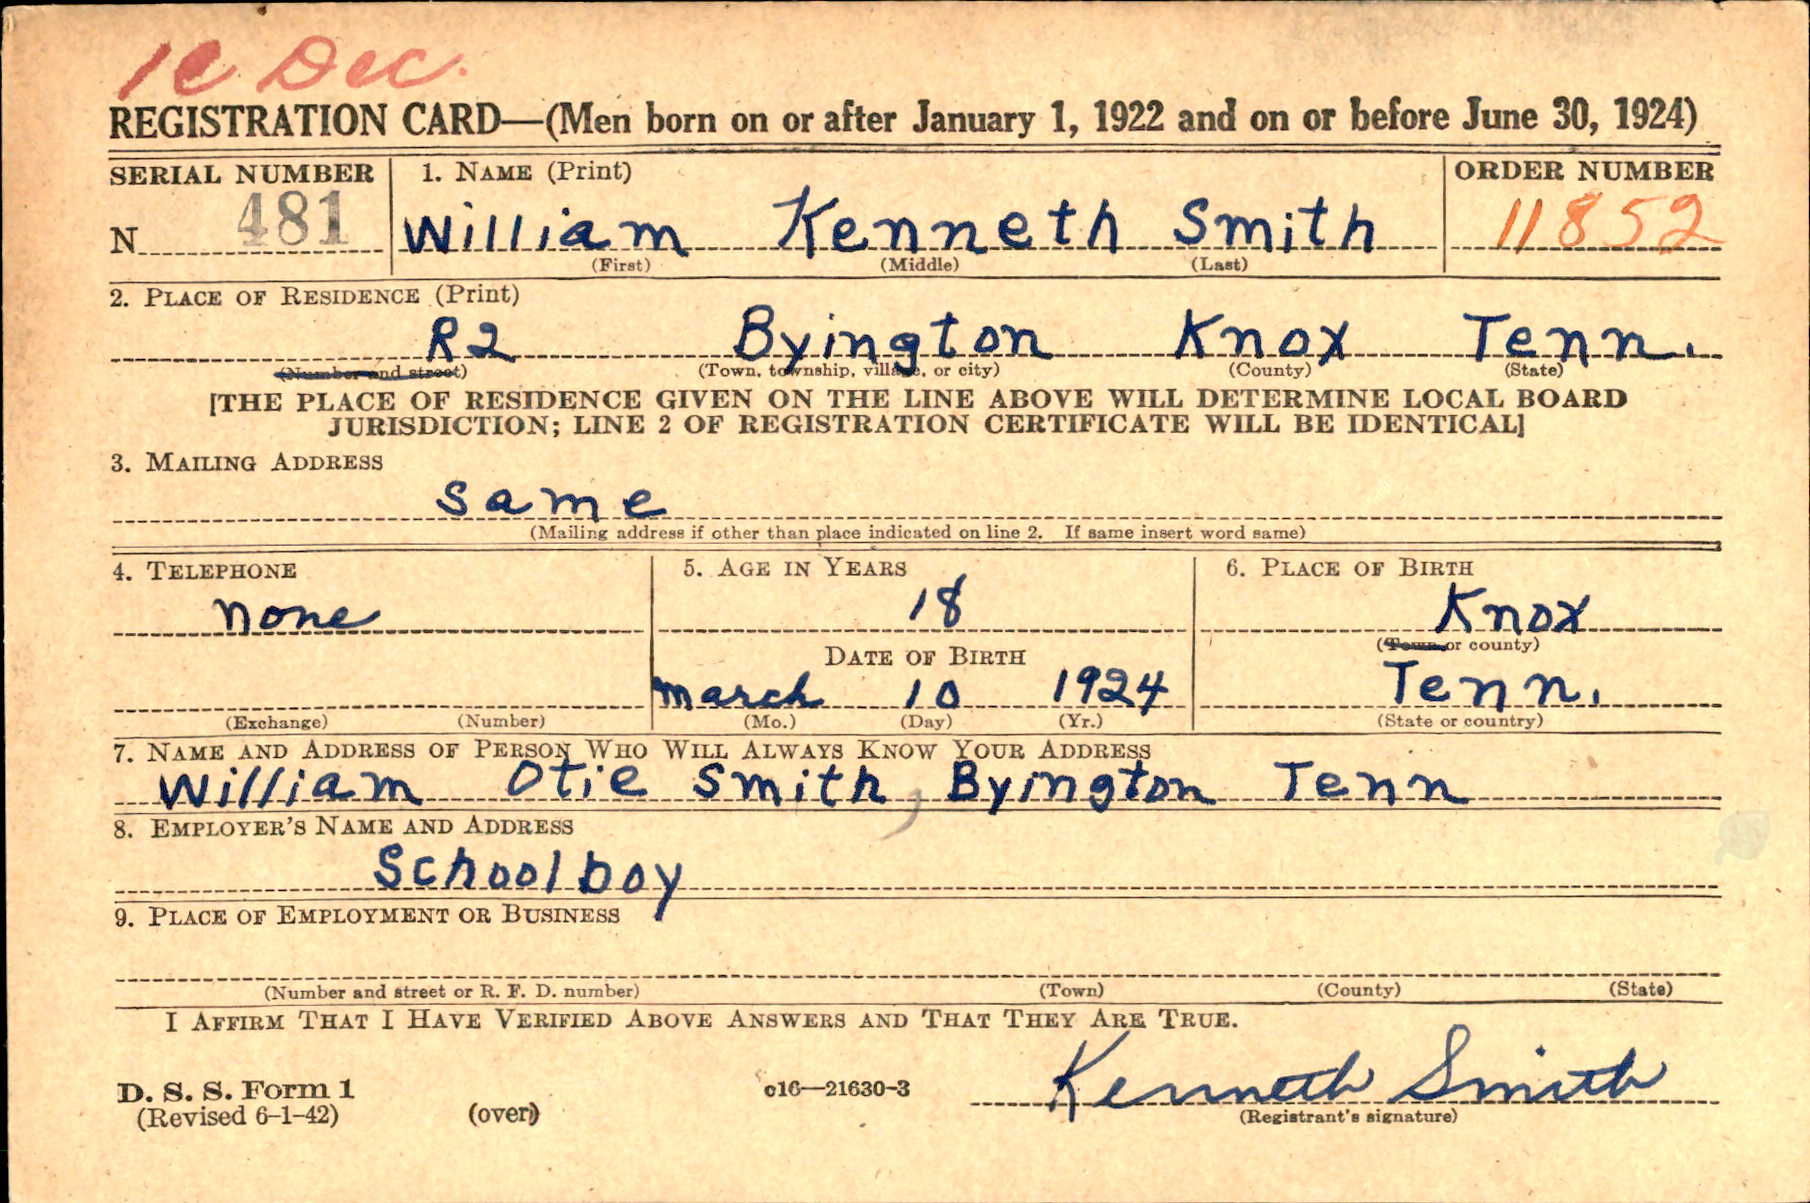 1C Dec.
REGISTRATION CARD—(Men born on or after January 1, 1922 and on or before June 30, 1924)
SERIAL NUMBER 1. NAME (Print) ORDER NUMBER
N 481 William Kenneth Smith 11852
(First) (Middle) (Last)
2. PLACE OF RESIDENCE (Print)
R2 Byington Knox Tenn.
(Number and street) (Town, township, village, or city) (County) (State)
[THE PLACE OF RESIDENCE GIVEN ON THE LINE ABOVE WILL DETERMINE LOCAL BOARD
JURISDICTION; LINE 2 OF REGISTRATION CERTIFICATE WILL BE IDENTICAL]
3. MAILING ADDRESS
Same
(Mailing address if other than place indicated on line 2. If same insert word same)
4. TELEPHONE 5. AGE IN YEARS 6. PLACE OF BIRTH
none 18 Knox
(Town or county)
DATE OF BIRTH
March 10 1924 Tenn.
(Exchange) (Number) (Mo.) (Day) (Yr.) (State or country)
7. NAME AND ADDRESS OF PERSON WHO WILL ALWAYS KNOW YOUR ADDRESS
William Otie Smith, Byington Tenn
8. EMPLOYER'S NAME AND ADDRESS
Schoolboy
9. PLACE OF EMPLOYMENT OR BUSINESS
(Number and street or R. F. D. number) (Town) (County) (State)
I AFFIRM THAT I HAVE VERIFIED ABOVE ANSWERS AND THAT THEY ARE TRUE.
D. S. S. Form 1 c16—21630-3 Kenneth Smith
(Revised 6-1-42) (over) (Registrant's signature)